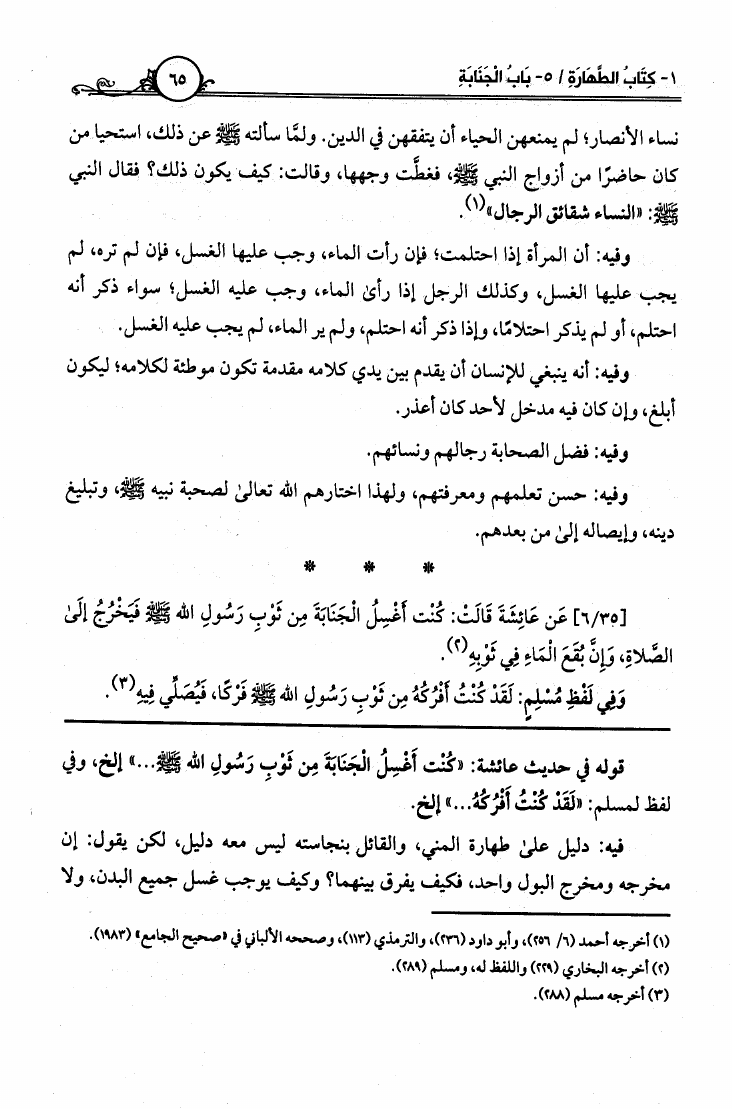 ١- كِتَابُ الطَّهَارَةِ / ٥- بَابُ الْجَنَابَةِ
٦٥
نساء الأنصار؛ لم يمنعهن الحياء أن يتفقهن في الدين. ولمَّا سألته ﷺ عن ذلك، استحيا من
كان حاضرًا من أزواج النبي ﷺ، فغطَّت وجهها، وقالت: كيف يكون ذلك؟ فقال النبي
ﷺ: «النساء شقائق الرجال»(١).
وفيه: أن المرأة إذا احتلمت؛ فإن رأت الماء، وجب عليها الغسل، فإن لم تره، لم
يجب عليها الغسل، وكذلك الرجل إذا رأىٰ الماء، وجب عليه الغسل؛ سواء ذكر أنه
احتلم، أو لم يذكر احتلامًا، وإذا ذكر أنه احتلم، ولم ير الماء، لم يجب عليه الغسل.
وفيه: أنه ينبغي للإنسان أن يقدم بين يدي كلامه مقدمة تكون موطئة لكلامه؛ ليكون
أبلغ، وإن كان فيه مدخل لأحد كان أعذر.
وفيه: فضل الصحابة رجالهم ونسائهم.
وفيه: حسن تعلمهم ومعرفتهم، ولهذا اختارهم الله تعالىٰ لصحبة نبيه ﷺ، وتبليغ
دينه، وإيصاله إلىٰ من بعدهم.
* * *
[٦/٣٥] عَن عَائِشَةَ قَالَتْ: كُنْت أَغْسِلُ الْجَنَابَةَ مِن ثَوْبِ رَسُولِ الله ﷺ فَيَخْرُجُ إلَىٰ
الصَّلاةِ، وَإِنَّ بُقَعَ الْمَاءِ فِي ثَوْبِهِ(٢).
وَفِي لَفْظِ مُسْلِمٍ: لَقَدْ كُنْتُ أَفْرُكُهُ مِن ثَوْبِ رَسُولِ الله ﷺ فَرْكًا، فَيُصَلِّي فِيهِ(٣).
قوله في حديث عائشة: «كُنْت أَغْسِلُ الْجَنَابَةَ مِن ثَوْبِ رَسُولِ الله ﷺ...» إلخ، وفي
لفظ لمسلم: «لَقَدْ كُنْتُ أَفْرُكُهُ...» إلخ.
فيه: دليل علىٰ طهارة المني، والقائل بنجاسته ليس معه دليل، لكن يقول: إن
مخرجه ومخرج البول واحد، فكيف يفرق بينهما؟ وكيف يوجب غسل جميع البدن، ولا
(١) أخرجه أحمد (٦/ ٢٥٦)، وأبو داود (٢٣٦)، والترمذي (١١٣)، وصححه الألباني في «صحيح الجامع» (١٩٨٣).
(٢) أخرجه البخاري (٢٢٩) واللفظ له، ومسلم (٢٨٩).
(٣) أخرجه مسلم (٢٨٨).